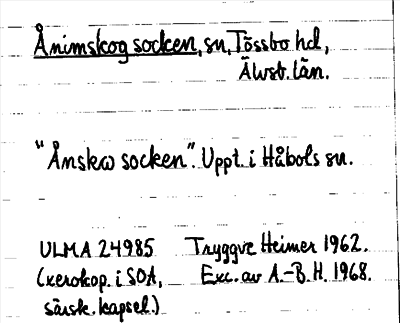 Ånimskog socken, sn, Tössbo hd,
Älvsb. län.
"Ånskω socken". Uppt. i Håbols sn.
ULMA 24985 Tryggve Heimer 1962.
(xerokop. i SOA, Exc. av A.-B. H. 1968.
särsk. kapsel.)